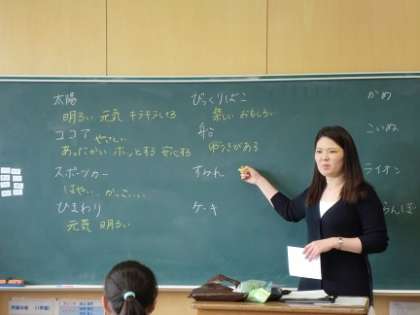 太陽
明るい 元気 キラキラしてる
ココア やさしい
あったかい ホッとする 安心する
スポーツカー
はやい、かっこいい
ひまわり
元気 明るい
びっくりばこ
楽しい おもしろい
船
ゆうきがある
すみれ
ケーキ
かめ
こいぬ
ライオン
らんぼ